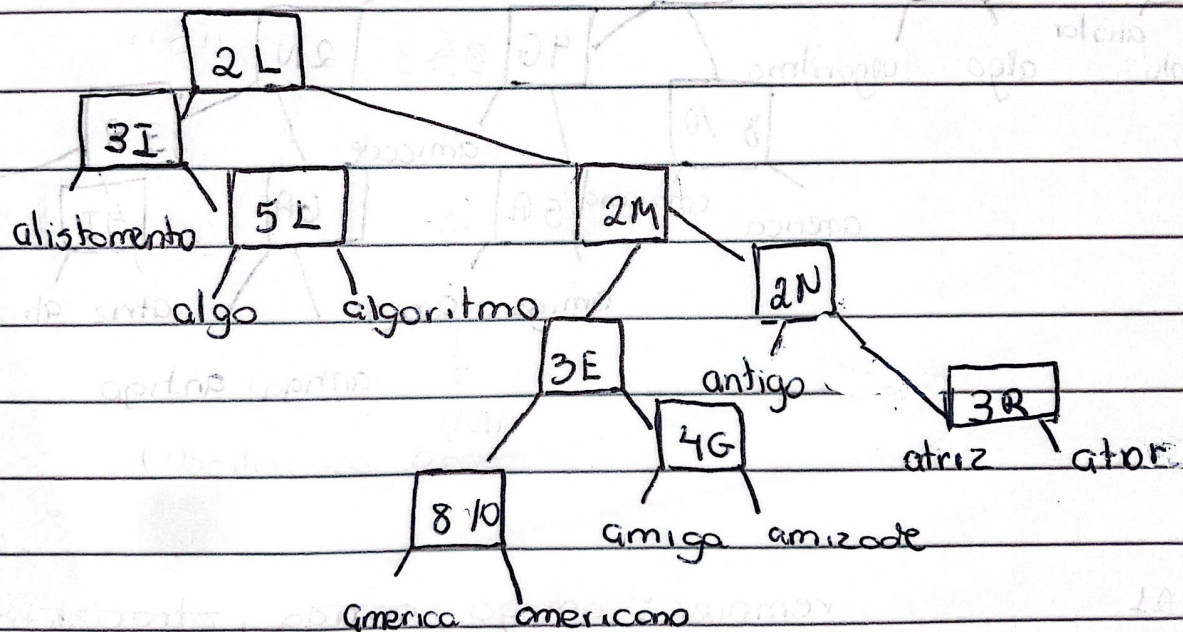 2 L
3I
5 L
2M
alistamento
2N
algo algoritmo
3E
antigo
3R
4G
atriz ator
8 \0
amiga amizade
america americano